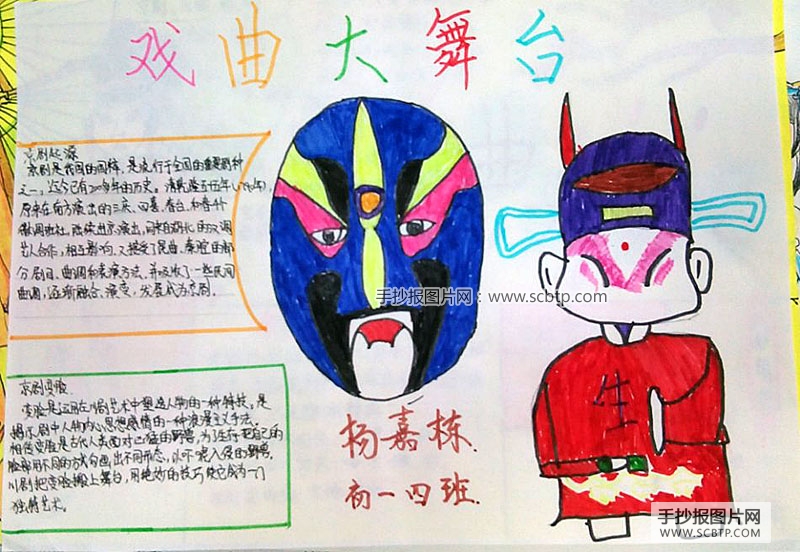 戏曲大舞台
京剧起源
京剧是我国的国粹,是流行于全国的重要剧种
之一,迄今已有200多年的历史。清乾隆五十五年(1790年),
原来在南方演出的三庆、四喜、春台、和春扑
徽调班社,陆续进京演出,同来自湖北的汉调
艺人合作,相互影响,又接受了昆曲、秦腔的部
分剧目、曲调和表演方法,并吸收了一些民间
曲调,逐渐融合、演变,发展成为京剧。
京剧变脸
变脸是运用在川剧艺术中塑造人物的一种特技,是
揭示剧中人物内心思想感情的一种浪漫主义手法。
相传变脸是古代人类面对凶猛的野兽,为了生存把自己的
脸部用不同的方式勾画出不同形态,以吓唬入侵的野兽。
川剧把变脸搬上舞台,用绝妙的技巧使它成为一门
独特艺术。
手抄报图片网:www.scbtp.com
生
杨嘉栋
初一四班.
手抄报图片网
SCBTP.COM